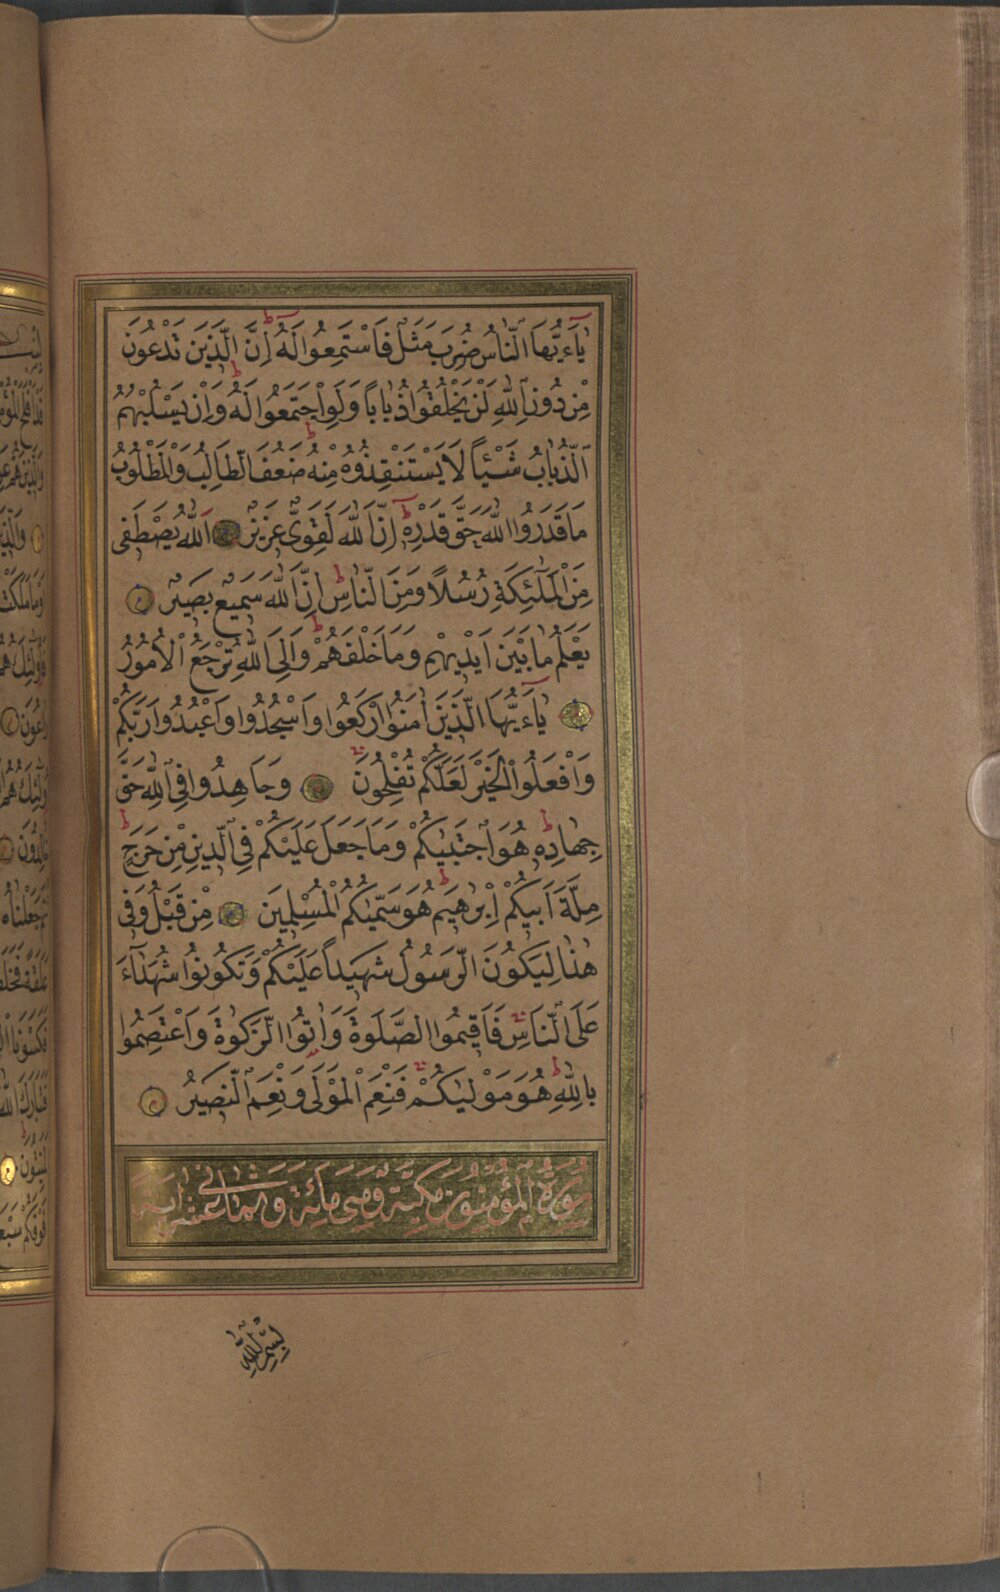 يَاءَيُّهَا النَّاسُ ضُرِبَ مَثَلٌ فَاسْتَمِعُوا لَهُ اِنَّ الَّذِينَ تَدْعُونَ
مِنْ دُونِ اللّٰهِ لَنْ يَخْلُقُوا ذُبَاباً وَلَوِ اجْتَمَعُوا لَهُ وَاِنْ يَسْلُبْهُمُ
الذُّبَابُ شَيْئاً لَا يَسْتَنْقِذُوهُ مِنْهُ ضَعُفَ الطَّالِبُ وَالْمَطْلُوبُ
مَا قَدَرُوا اللّٰهَ حَقَّ قَدْرِهٖ اِنَّ اللّٰهَ لَقَوِىٌّ عَزِيزٌ اَللّٰهُ يَصْطَفٖى
مِنَ الْمَلٰٓئِكَةِ رُسُلًا وَمِنَ النَّاسِ اِنَّ اللّٰهَ سَمِيعٌ بَصِيرٌ
يَعْلَمُ مَا بَيْنَ اَيْدِيهِمْ وَمَا خَلْفَهُمْ وَاِلَى اللّٰهِ تُرْجَعُ الْاُمُورُ
يَاءَيُّهَا الَّذِينَ اٰمَنُوا ارْكَعُوا وَاسْجُدُوا وَاعْبُدُوا رَبَّكُمْ
وَافْعَلُوا الْخَيْرَ لَعَلَّكُمْ تُفْلِحُونَ وَجَاهِدُوا فِى اللّٰهِ حَقَّ
جِهَادِهٖ هُوَ اجْتَبٰيكُمْ وَمَا جَعَلَ عَلَيْكُمْ فِى الدِّينِ مِنْ حَرَجٍ
مِلَّةَ اَبِيكُمْ اِبْرٰهِيمَ هُوَ سَمّٰيكُمُ الْمُسْلِمِينَ مِنْ قَبْلُ وَفٖى
هٰذَا لِيَكُونَ الرَّسُولُ شَهِيداً عَلَيْكُمْ وَتَكُونُوا شُهَدَٓاءَ
عَلَى النَّاسِ فَاَقِيمُوا الصَّلٰوةَ وَاٰتُوا الزَّكٰوةَ وَاعْتَصِمُوا
بِاللّٰهِ هُوَ مَوْلٰيكُمْ فَنِعْمَ الْمَوْلٰى وَنِعْمَ النَّصِيرُ
سُورَةُ الْمُؤْمِنُونَ مَكِيَّةٌ وَهِىَ مِائَةٌ وَثَمَانِى عَشَرَ اٰيَةً
بِسْمِ اللّٰهِ